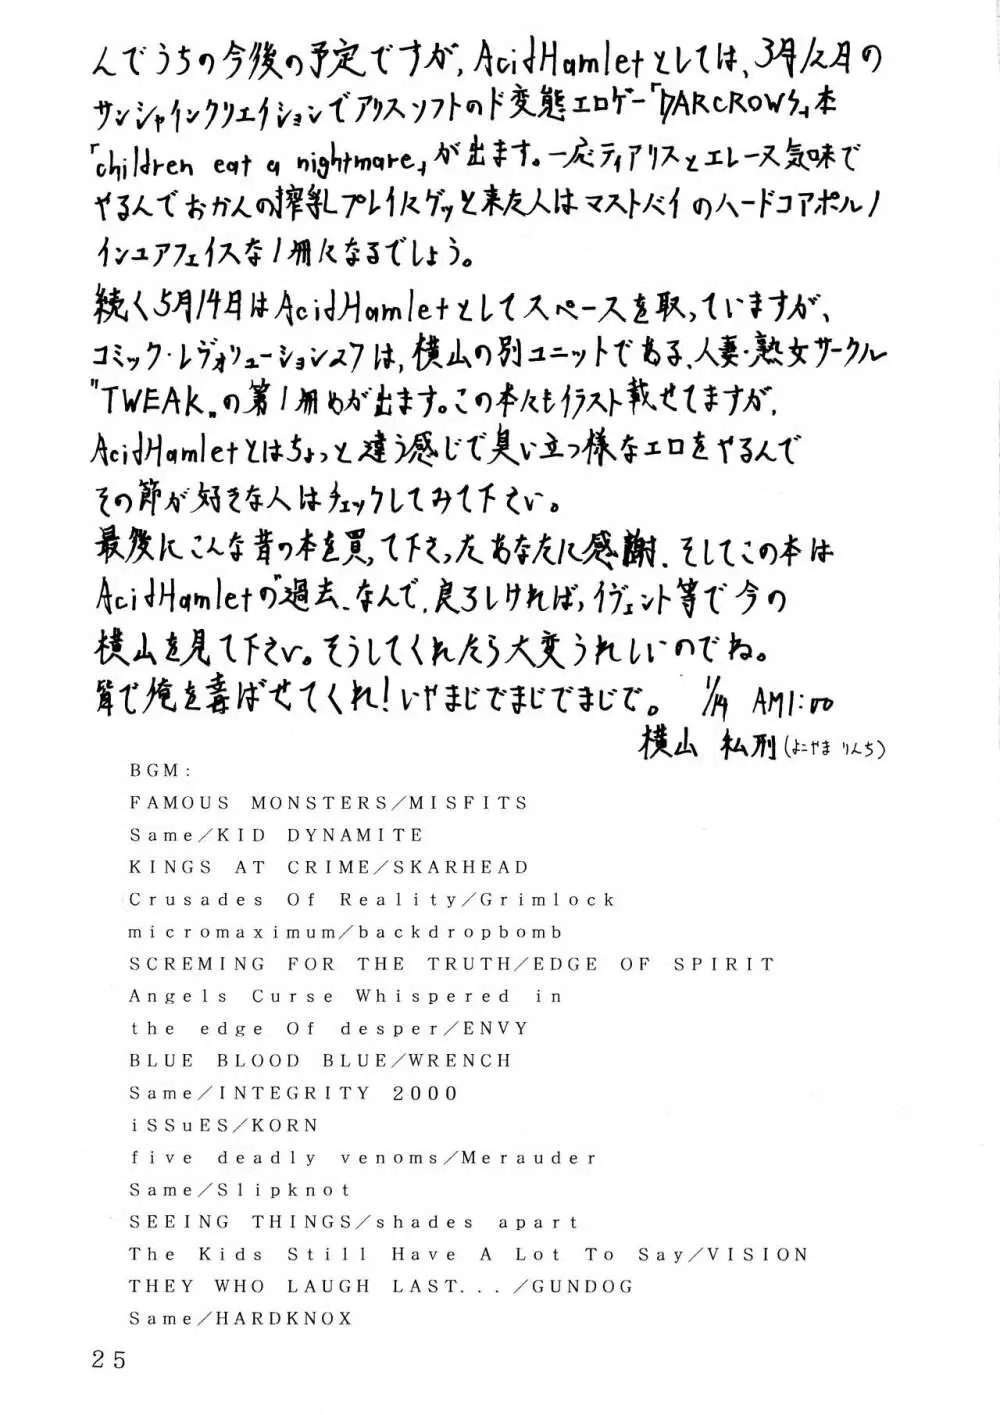 んでうちの今後の予定ですが、AcidHamletとしては、3月12日の
サンシャインクリエイションでアリスソフトのド変態エロゲー「DARCROWS」本
「children eat a nightmare」が出ます。一応ティアリスとエレーヌ気味で
やるんでおかんの搾乳プレイにゲッと来た人はマストバイのハードコアポルノ
インユアフェイスな1冊になるでしょう。
続く5月14日はAcidHamletとしてスペースを取っていますが、
コミック・レヴォリューション27は、横山の別ユニットである、人妻・熟女サークル
"TWEAK„の第1冊めが出ます。この本々もイラスト載せてますが、
AcidHamletとはちょっと違う感じで臭い立つ様なエロをやるんで
その節が好きな人はチェックしてみて下さい。
最後にこんな昔の本を買って下さったあなたに感謝、そしてこの本は
AcidHamletの"過去、なんで、良ろしければ、イヴェント等で今の
横山を見て下さい。そうしてくれたら大変うれしいのでね。
皆で俺を喜ばせてくれ!いやまじでまじでまじで。 1/14 AM1:00
横山 私刑(よこやま りんち)
BGM:
FAMOUS MONSTERS/MISFITS
Same/KID DYNAMITE
KINGS AT CRIME/SKARHEAD
Crusades Of Reality/Grimlock
micromaximum/backdropbomb
SCREMING FOR THE TRUTH/EDGE OF SPIRIT
Angels Curse Whispered in
the edge Of desper/ENVY
BLUE BLOOD BLUE/WRENCH
Same/INTEGRITY 2000
iSSuES/KORN
five deadly venoms/Merauder
Same/Slipknot
SEEING THINGS/shades apart
The Kids Still Have A Lot To Say/VISION
THEY WHO LAUGH LAST.../GUNDOG
Same/HARDKNOX
25